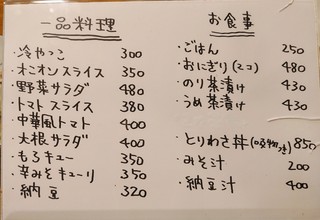 一品料理
・冷やっこ 300
・オニオンスライス 350
・野菜サラダ 480
・トマトスライス 380
・中華風トマト 400
・大根サラダ 400
・もろキュー 350
・辛みそキューリ 350
・納豆 320
お食事
・ごはん 250
・おにぎり(2コ) 480
・のり茶漬け 430
・うめ茶漬け 430
・とりわさ丼(吸物つき) 850
・みそ汁 200
・納豆汁 400